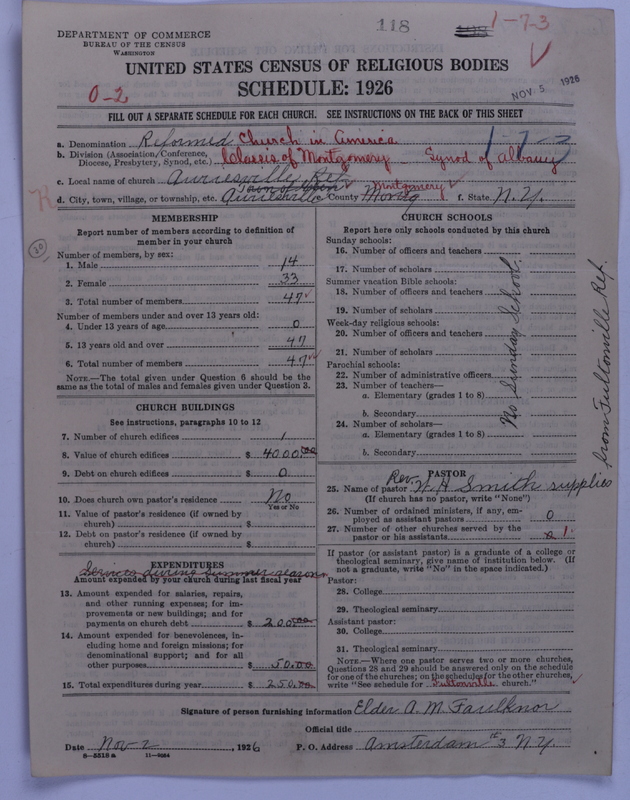 118
1-7-3
DEPARTMENT OF COMMERCE
BUREAU OF THE CENSUS
WASHINGTON
UNITED STATES CENSUS OF RELIGIOUS BODIES
SCHEDULE: 1926
0-2
NOV. 5 1926
FILL OUT A SEPARATE SCHEDULE FOR EACH CHURCH. SEE INSTRUCTIONS ON THE BACK OF THIS SHEET
a. Denomination Reformed Church in America
1-7-3
b. Division (Association, Conference, Diocese, Presbytery, Synod, etc.) Classis of Montgomery - Synod of Albany
c. Local name of church Auriesville Ref.
d. City, town, village, or township, etc. Auriesville County Montg Montgomery f. State N.Y.
MEMBERSHIP
Report number of members according to definition of
member in your church
Number of members, by sex:
1. Male 14
2. Female 33
3. Total number of members 47
Number of members under and over 13 years old:
4. Under 13 years of age 0
5. 13 years old and over 47
6. Total number of members 47
NOTE.—The total given under Question 6 should be the
same as the total of males and females given under Question 3.
CHURCH BUILDINGS
See instructions, paragraphs 10 to 12
7. Number of church edifices 1
8. Value of church edifices $ 4000.00
9. Debt on church edifices $ 0
10. Does church own pastor's residence No
Yes or No
11. Value of pastor's residence (if owned by
church) $
12. Debt on pastor's residence (if owned by
church) $
EXPENDITURES
Services during Summer season
Amount expended by your church during last fiscal year
13. Amount expended for salaries, repairs,
and other running expenses; for im-
provements or new buildings; and for
payments on church debt $ 200.00
14. Amount expended for benevolences, in-
cluding home and foreign missions; for
denominational support; and for all
other purposes $ 50.00
15. Total expenditures during year $ 250.00
CHURCH SCHOOLS
Report here only schools conducted by this church
Sunday schools:
16. Number of officers and teachers
17. Number of scholars
Summer vacation Bible schools:
18. Number of officers and teachers
19. Number of scholars
Week-day religious schools:
20. Number of officers and teachers
21. Number of scholars
Parochial schools:
22. Number of administrative officers
23. Number of teachers—
a. Elementary (grades 1 to 8)
b. Secondary
24. Number of scholars—
a. Elementary (grades 1 to 8)
b. Secondary
No Sunday School.
from Fultonville Ref.
PASTOR
25. Name of pastor Rev. W. H. Smith supplies
(If church has no pastor, write "None")
26. Number of ordained ministers, if any, em-
ployed as assistant pastors 0
27. Number of other churches served by the
pastor or his assistants 1.
If pastor (or assistant pastor) is a graduate of a college or
theological seminary, give name of institution below. (If
not a graduate, write "No" in the space indicated.)
Pastor:
28. College
29. Theological seminary
Assistant pastor:
30. College
31. Theological seminary
NOTE.—Where one pastor serves two or more churches,
Questions 28 and 29 should be answered only on the schedule
for one of the churches; on the schedules for the other churches,
write "See schedule for Fultonville church."
Signature of person furnishing information Elder A. M. Faulknor
Official title
Date Nov 2, 1926 P. O. Address Amsterdam #3 N.Y.
8-5518a 11-9054